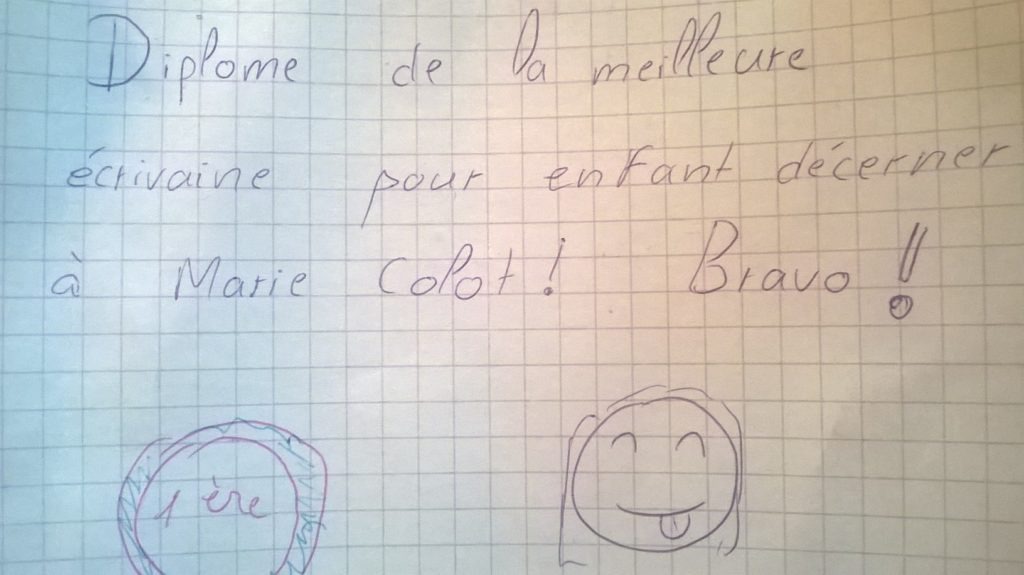 Diplome de la meilleure
écrivaine pour enfant décerner
à Marie Colot ! Bravo !
1 ère